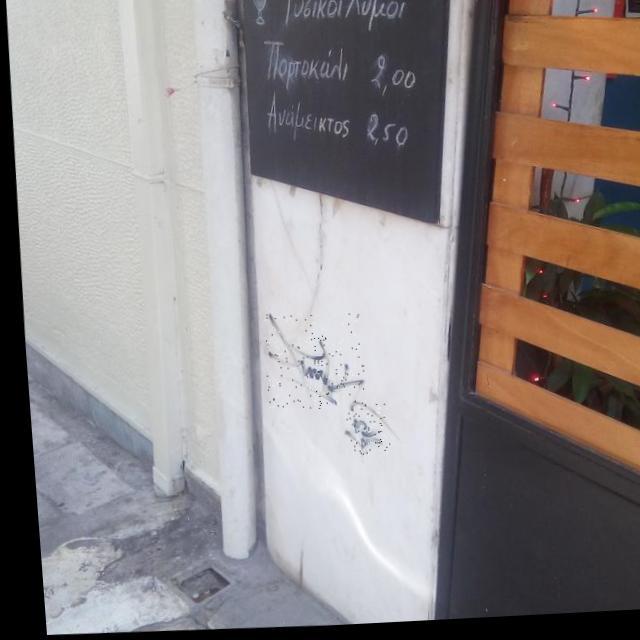 Φυσικοί Χυμοί
Πορτοκάλι 2,00
Ανάμεικτος 2,50